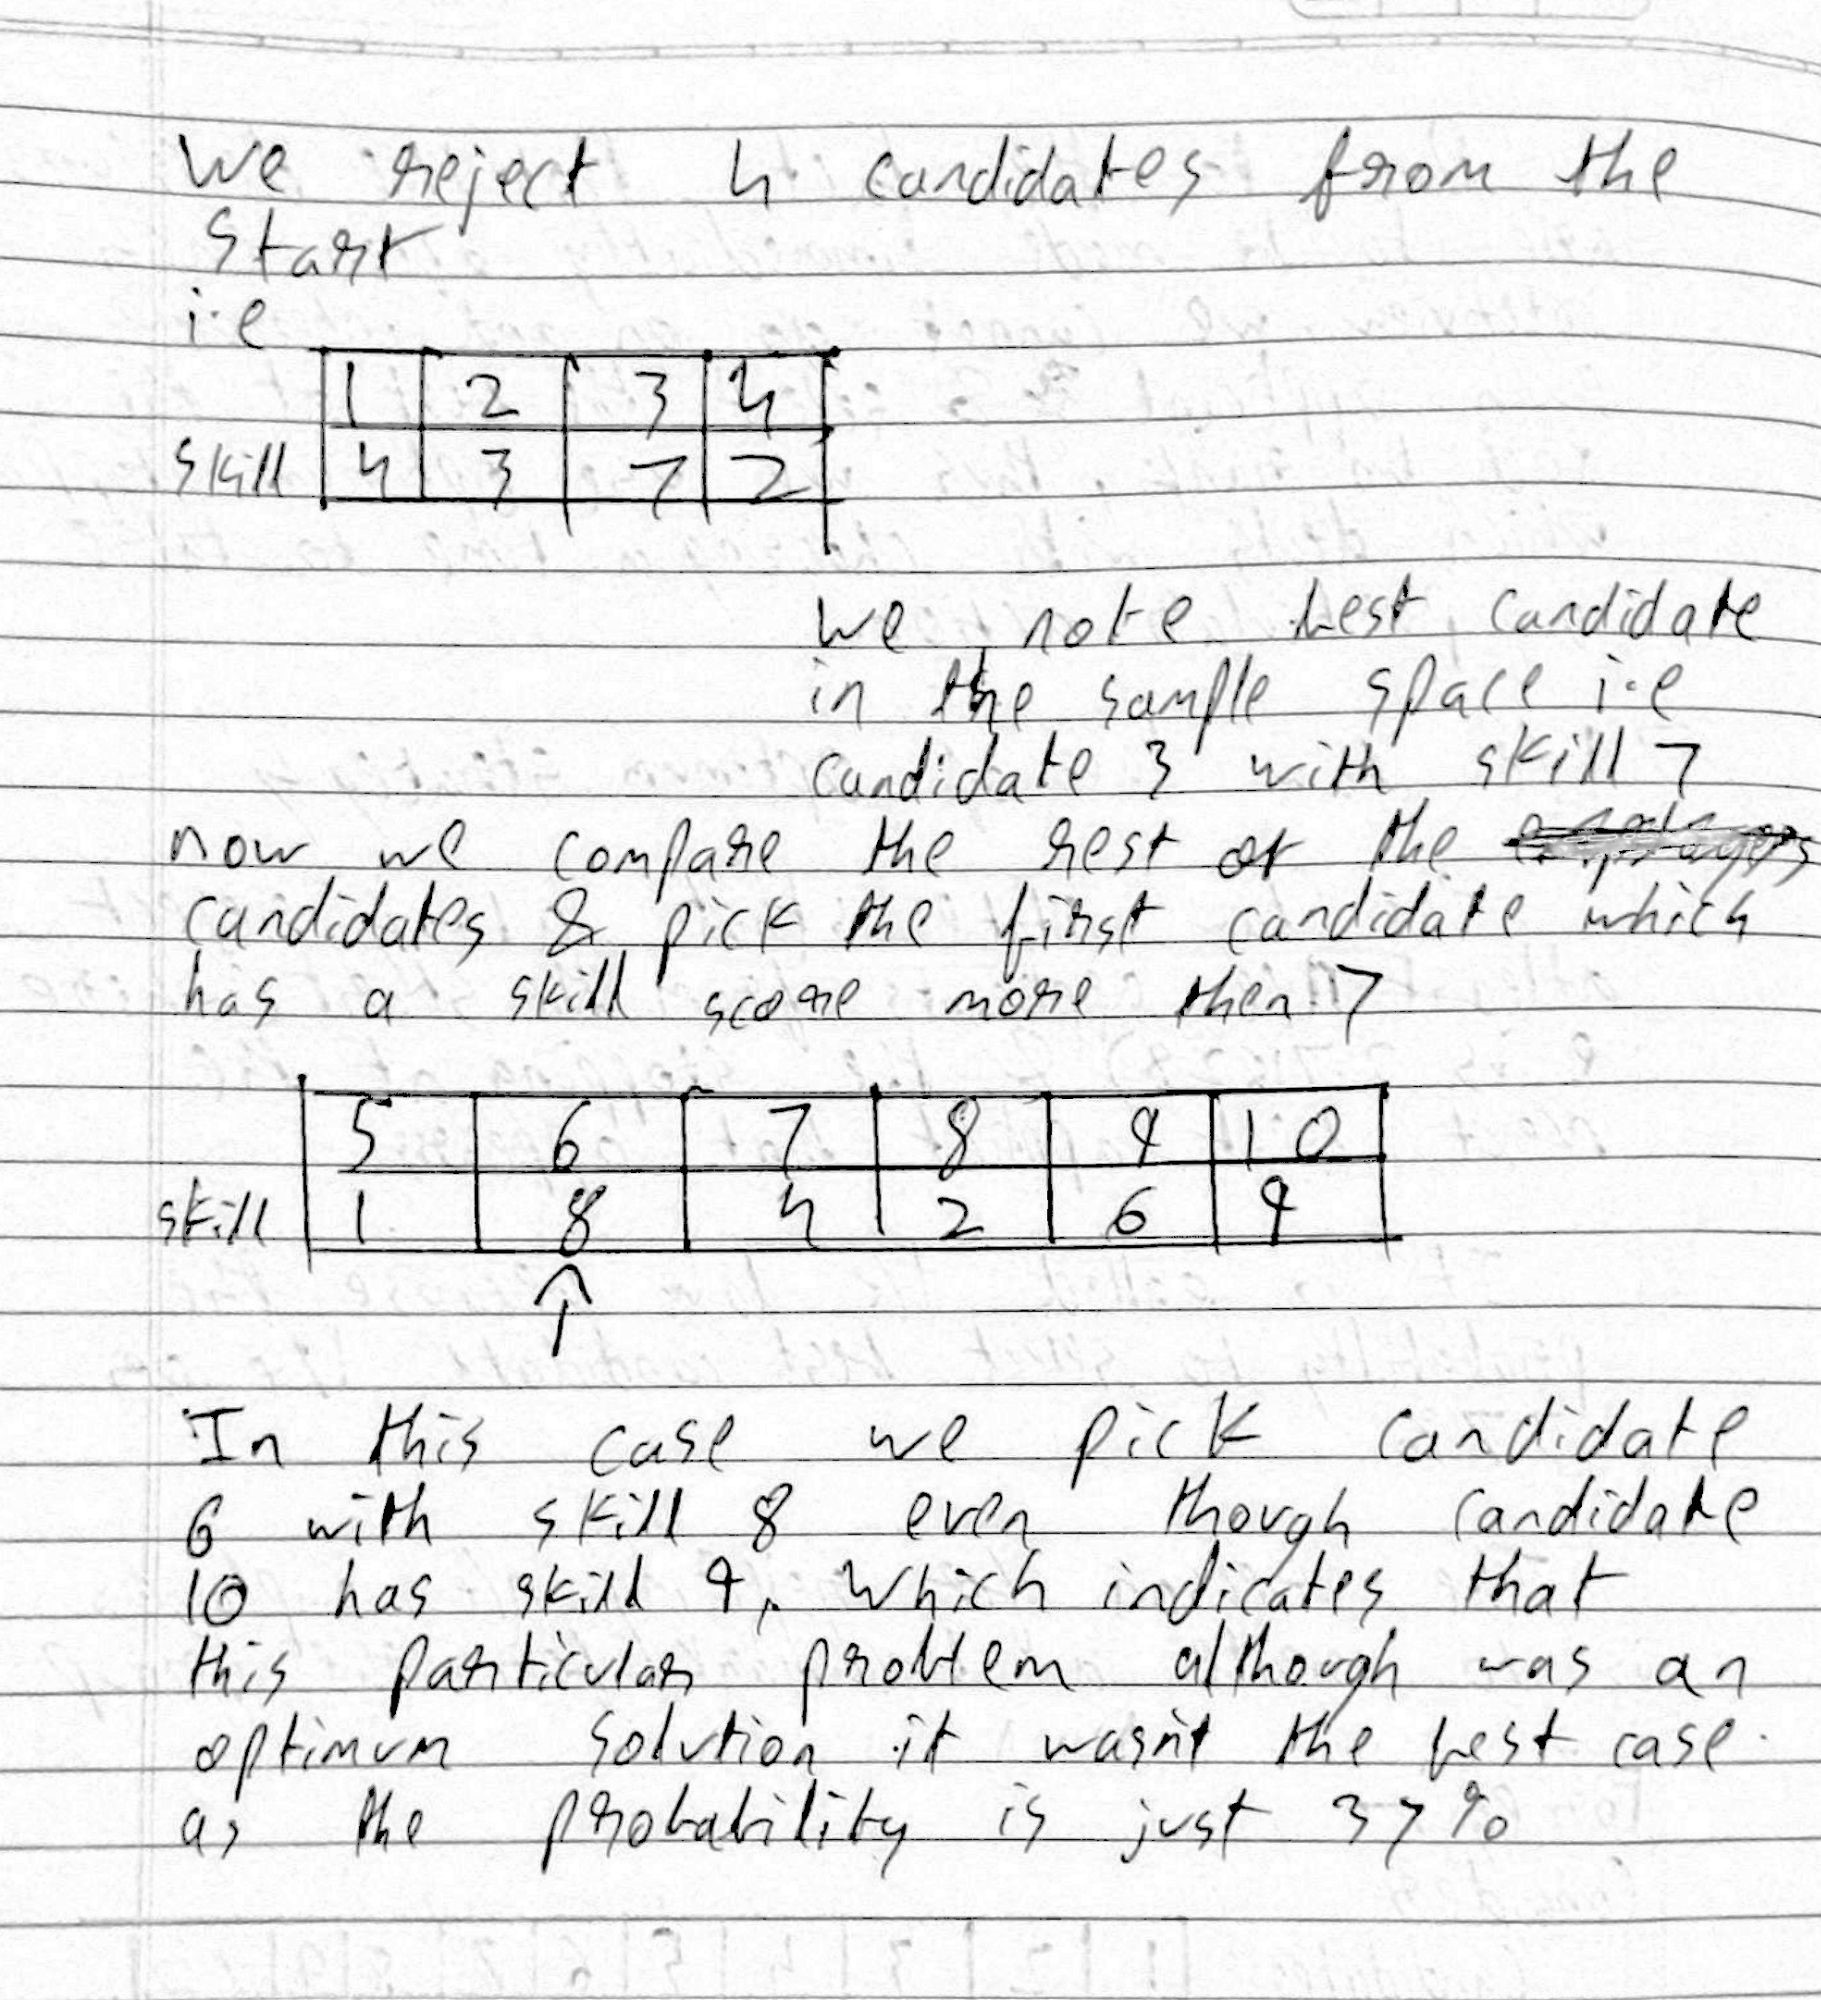 We reject 4 candidates from the
start
i.e
1 2 3 4
skill 4 3 7 2
we note best candidate
in the sample space i.e
candidate 3 with skill 7
now we compare the rest of the
candidates & pick the first candidate which
has a skill score more then 7
5 6 7 8 9 10
skill 1 8 4 2 6 9
↑
In this case we pick candidate
6 with skill 8 even though candidate
10 has skill 9. Which indicates that
this particular problem although was an
optimum solution it wasn't the best case.
as the probability is just 37%